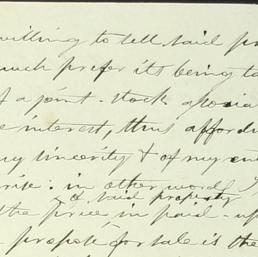 willing to sell said pr
much prefer its being ta
of a joint-stock associa
e interest, thus affordi
my sincerity & of my en
rise: in other words I
of said property
the price in paid-up
propose for sale is the